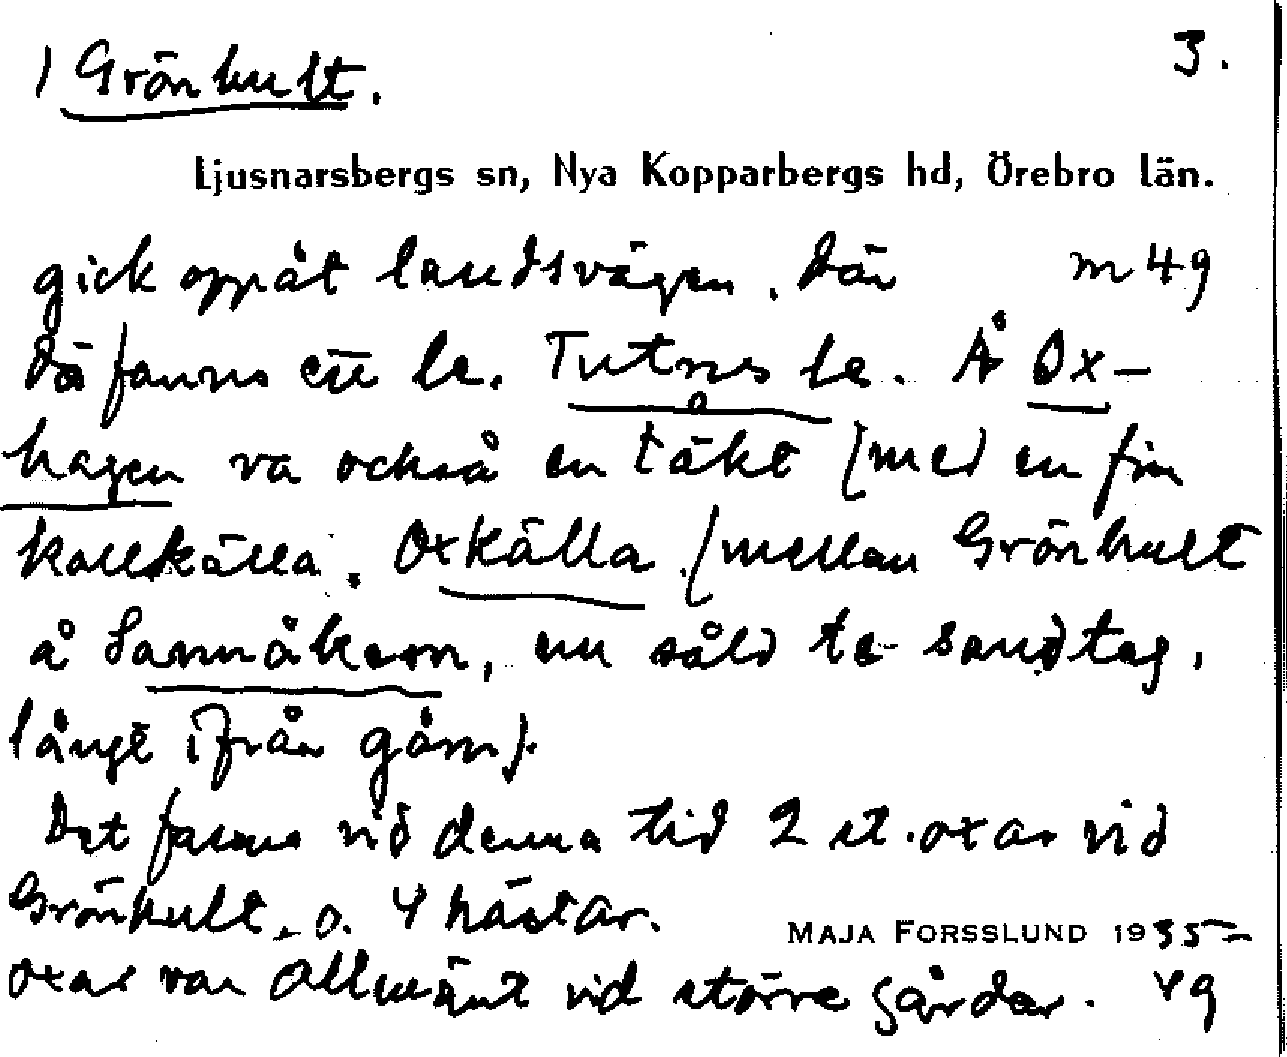 1 Grönhult. 3.
Ljusnarsbergs sn, Nya Kopparbergs hd, Örebro län.
gick oppåt landsvägen. Där m 49
då fanns ett le. Tutnes le. Å Ox-
hagen va också en täkt (med en fin
kallkälla. Oxkälla (mellan Grönhult
å Sannåkern, nu såld te sandtag,
långt ifrån gåln).
Det fanns vid denna tid 2 st. oxar vid
Grönhult. o. 4 hästar.
MAJA FORSSLUND 1935-
oxar var allmänt vid större gårdar. 49